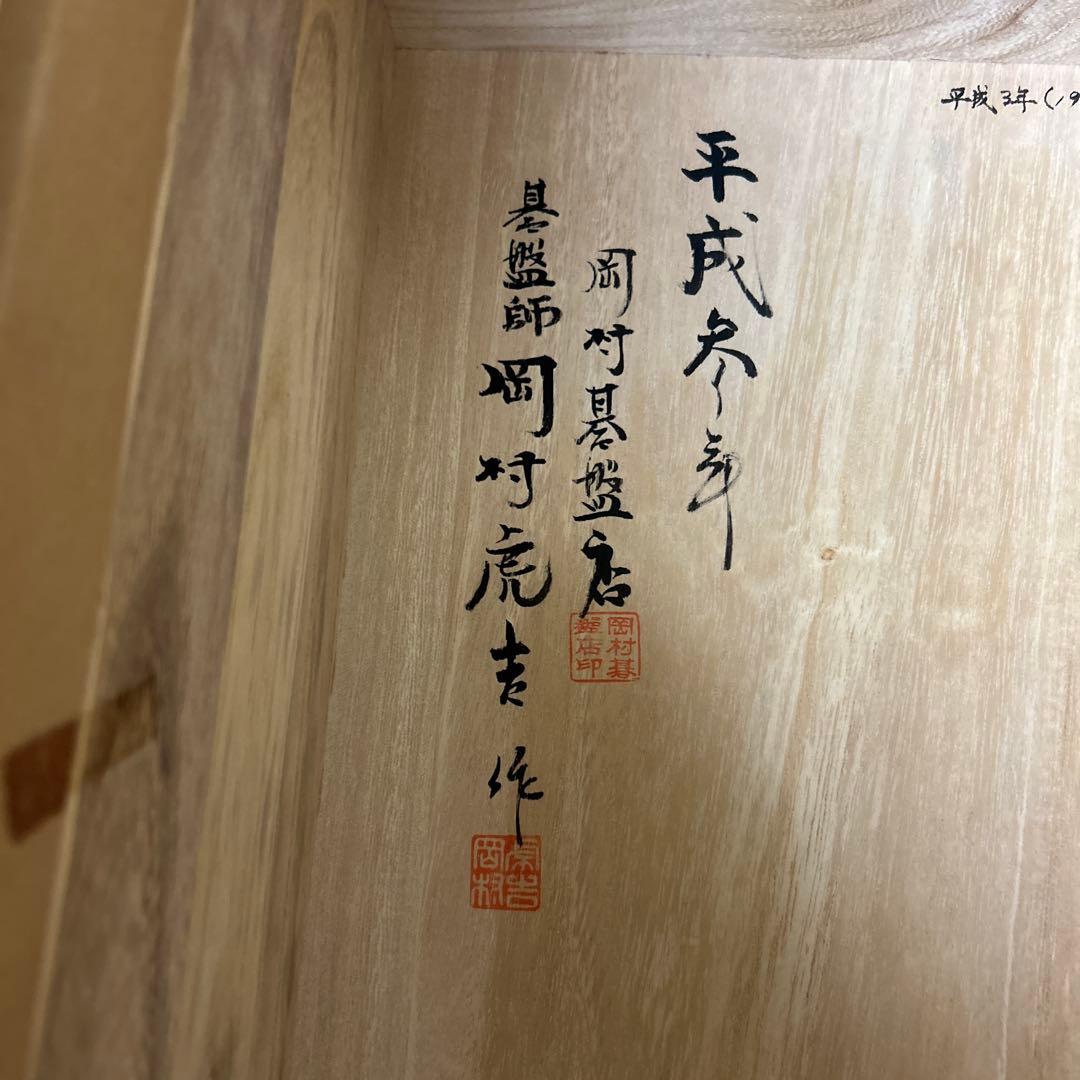 平成3年(19
平成参年
岡村碁盤店
岡村碁盤店印
碁盤師 岡村虎吉 作